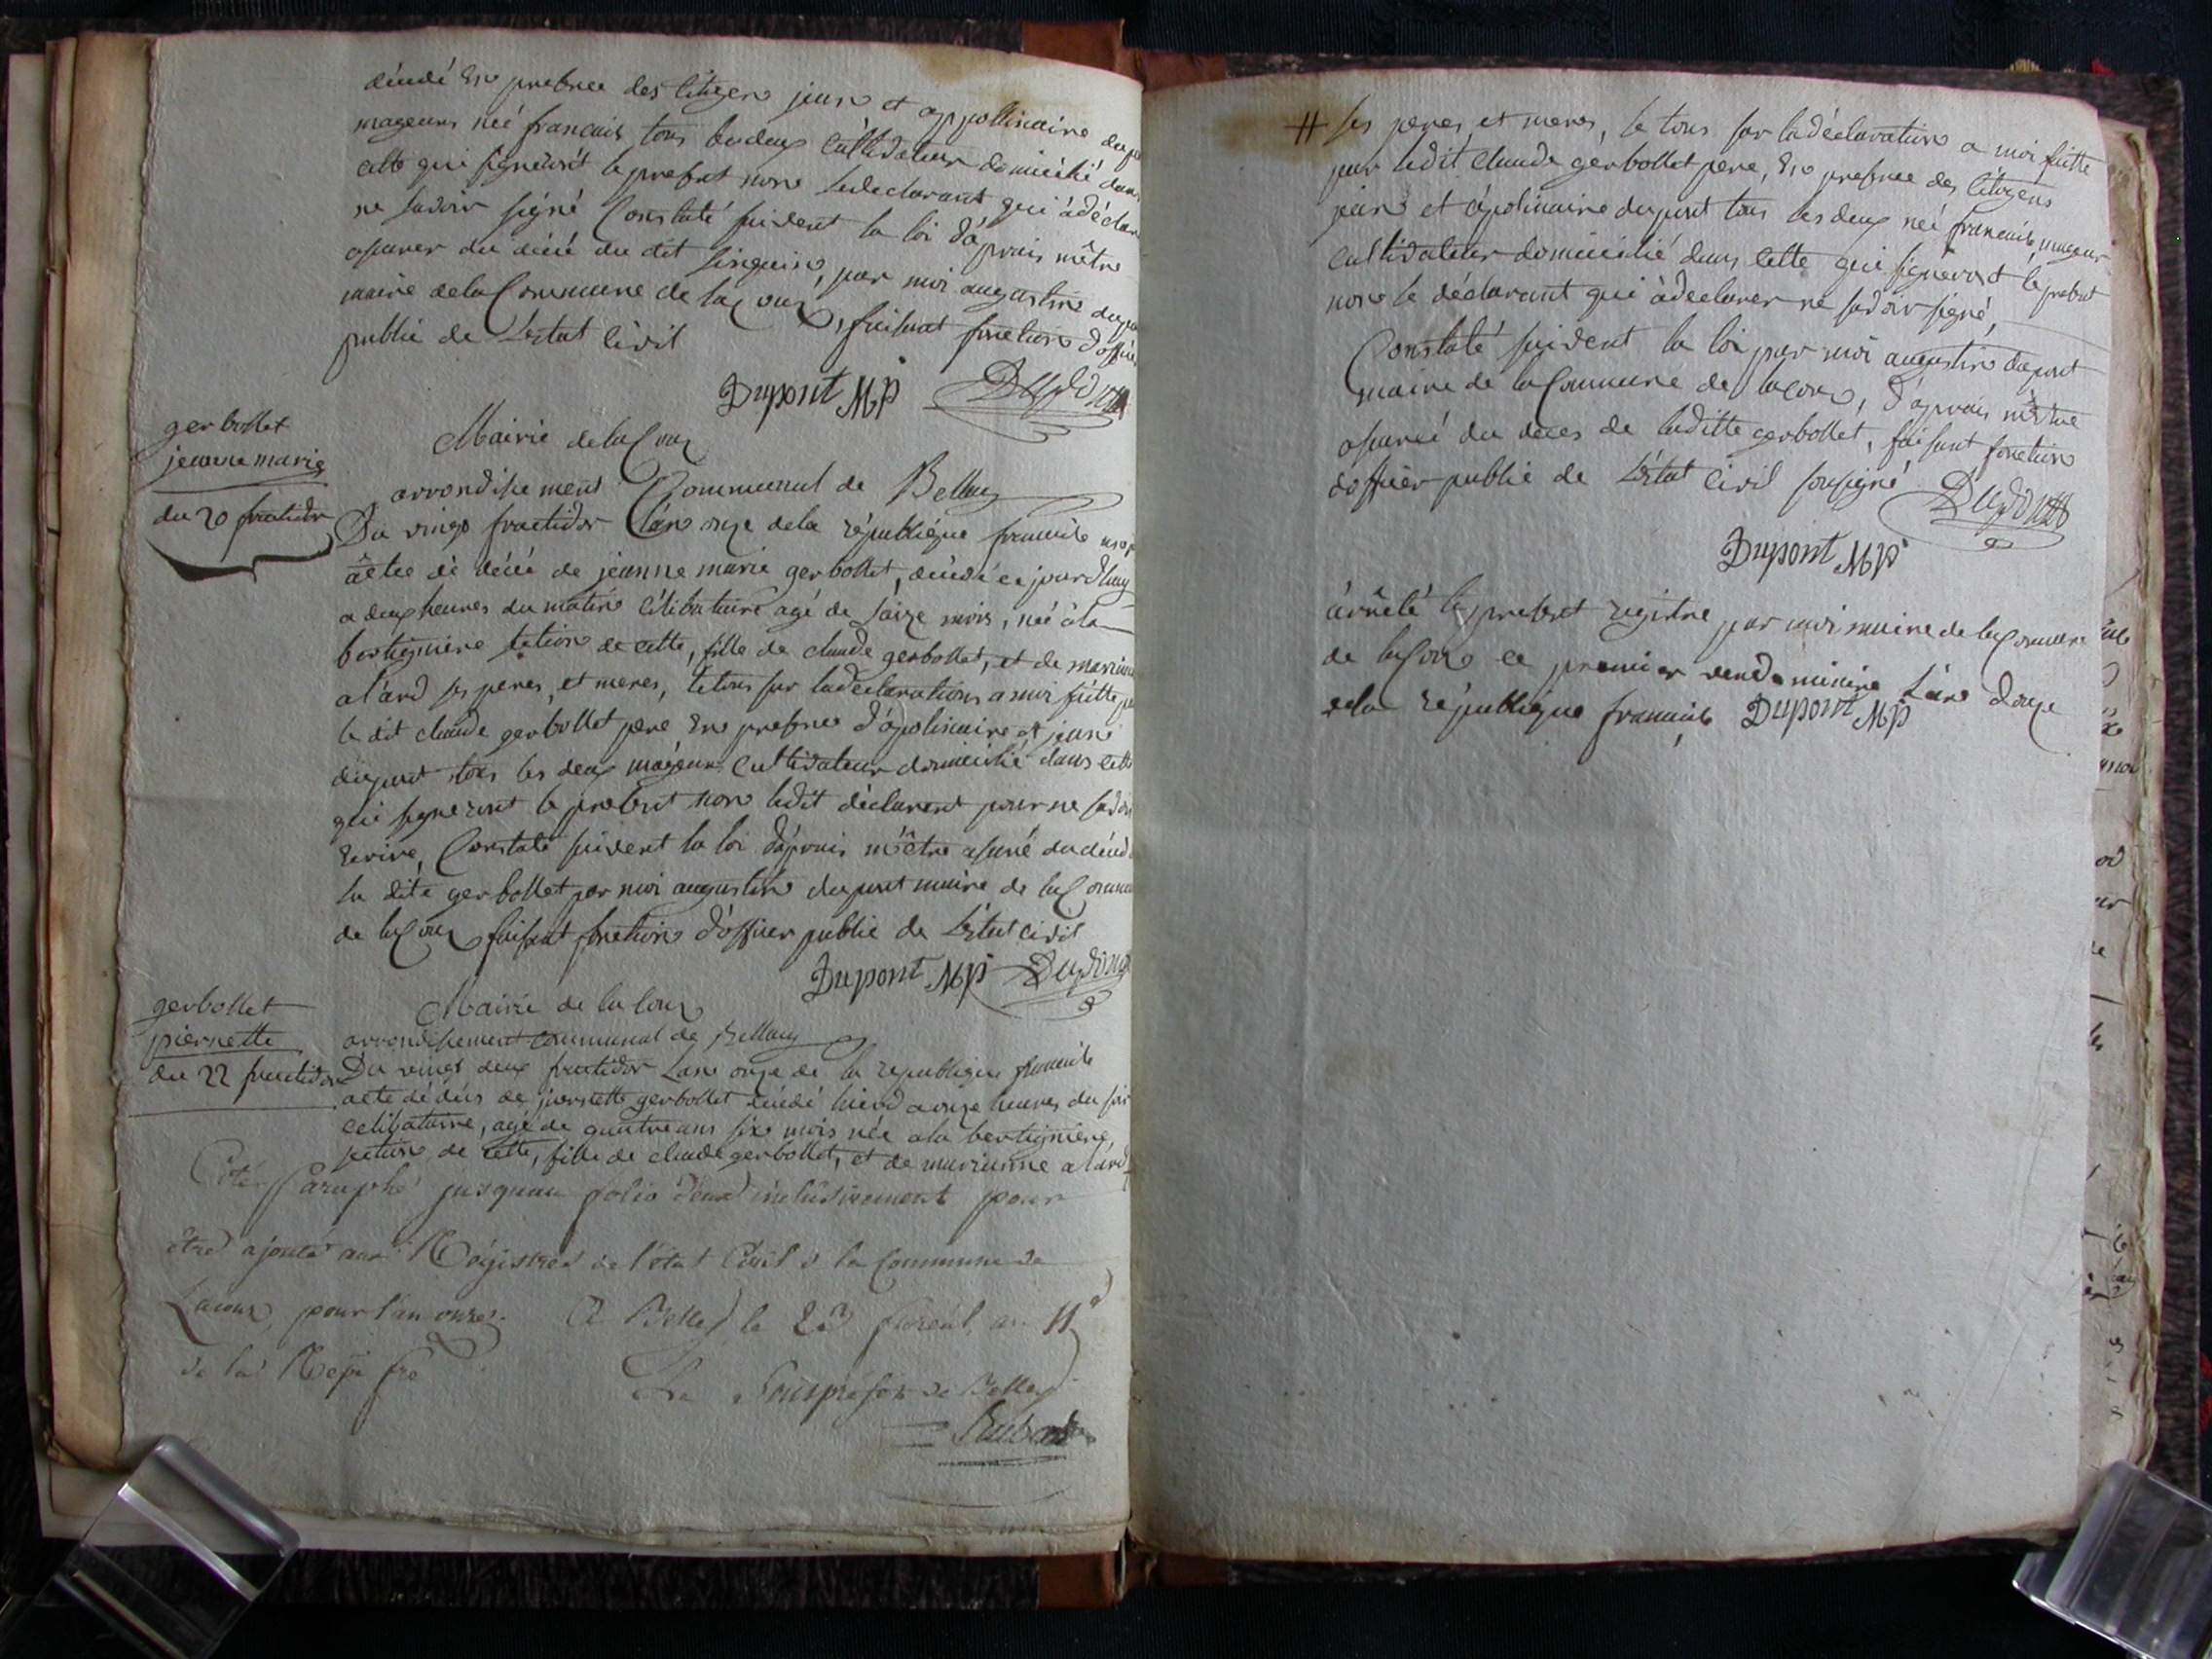 décédé En presence des Citoyens jean et appollinaire
mageurs neé francais tous les deux Cultivateur domicilié dans
cette qui signeront le present non le declarant qui à déclaré
ne savoir signé Constaté suivent la loi d'aprais mêtre
asurer du décé du dit par moi augustin
maire de la Commune de lacoux, faisant fonction d'officier
public de L'Estat Civil
Dupont MP Dupont
gerbollet
jeanne marie
du 20 fructidor
Mairie de lacoux
arrondissement Communal de Belley
Du vingt fructidor L'an onze de la république francaise
actee de décé de jeanne marie gerbollet, décédé ce jourdhuy
a deux heures du matin célibataire agé de saize mois, neé à la
bertigniere section de cette, fille de claude gerbollet, et de marianne
alard ses peres, et meres, le tous sur la declaration a moi faitte
le dit claude gerbollet pere En presence d'apolinaire et jean
dupont tous les deux mageurs Cultivateur domicilié dans cette
qui signeront le present non ledit déclarent pour ne savoir
Ecrire, Constaté suivent la loi d'aprais m'être asuré du décéd
la dite gerbollet par moi augustin dupont maire de la Commune
de lacoux faisant fonction d'officier public de L'Estat civil
Dupont MP Dupont
gerbollet
pierrette
du 22 fructidor
Mairie de la coux
arrondissement communal de Belley
Du vingt deux fructidor Lan onze de la republique francaise
acte de décés de pierrette gerbollet décédé hierd a onze heures du soir
celibataire, agé de quatre ans six mois née a la bertigniere,
section de cette, fille de claude gerbollet, et de marianne alard #
Coté Paraphé jusquau folio deux inclusivement pour
être ajouté aux Régistres de l'état Civil de la Commune de
Lacoux pour l'an onze. A Belley le 23 floréal an 11
de la Rép. fre
Le Souspréfet de Belley
# ses peres et meres, le tous sur la déclaration a moi faitte
par ledit claude gerbollet pere, En presence des Citoyens
jean et apolinaire dupont tous les deux neé francais, mageur
cultivateur domicilié dans cette qui signeront le present
non le déclarant qui à declarer ne savoir signé,
Constaté suivent la loi par moi augustin dupont
maire de la Commune de lacoux, d'aprais m'être
asureé du deces de laditte gerbollet, faisant fonction
dofficier public de L'Estat Civil sousigné
Dupont
Dupont MP
àrrêté le present registre par moi maire de la Commune
de lacoux ce premier vendeminaire L'an douze
de la république francaise Dupont MP